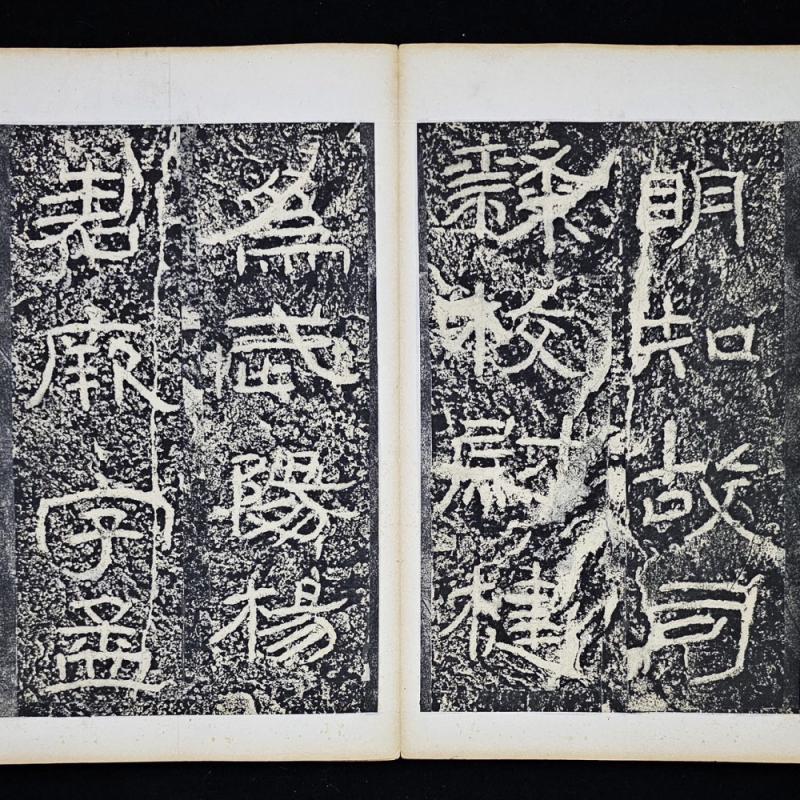 明知故司
隸校尉楗
為武陽楊
君厥字孟